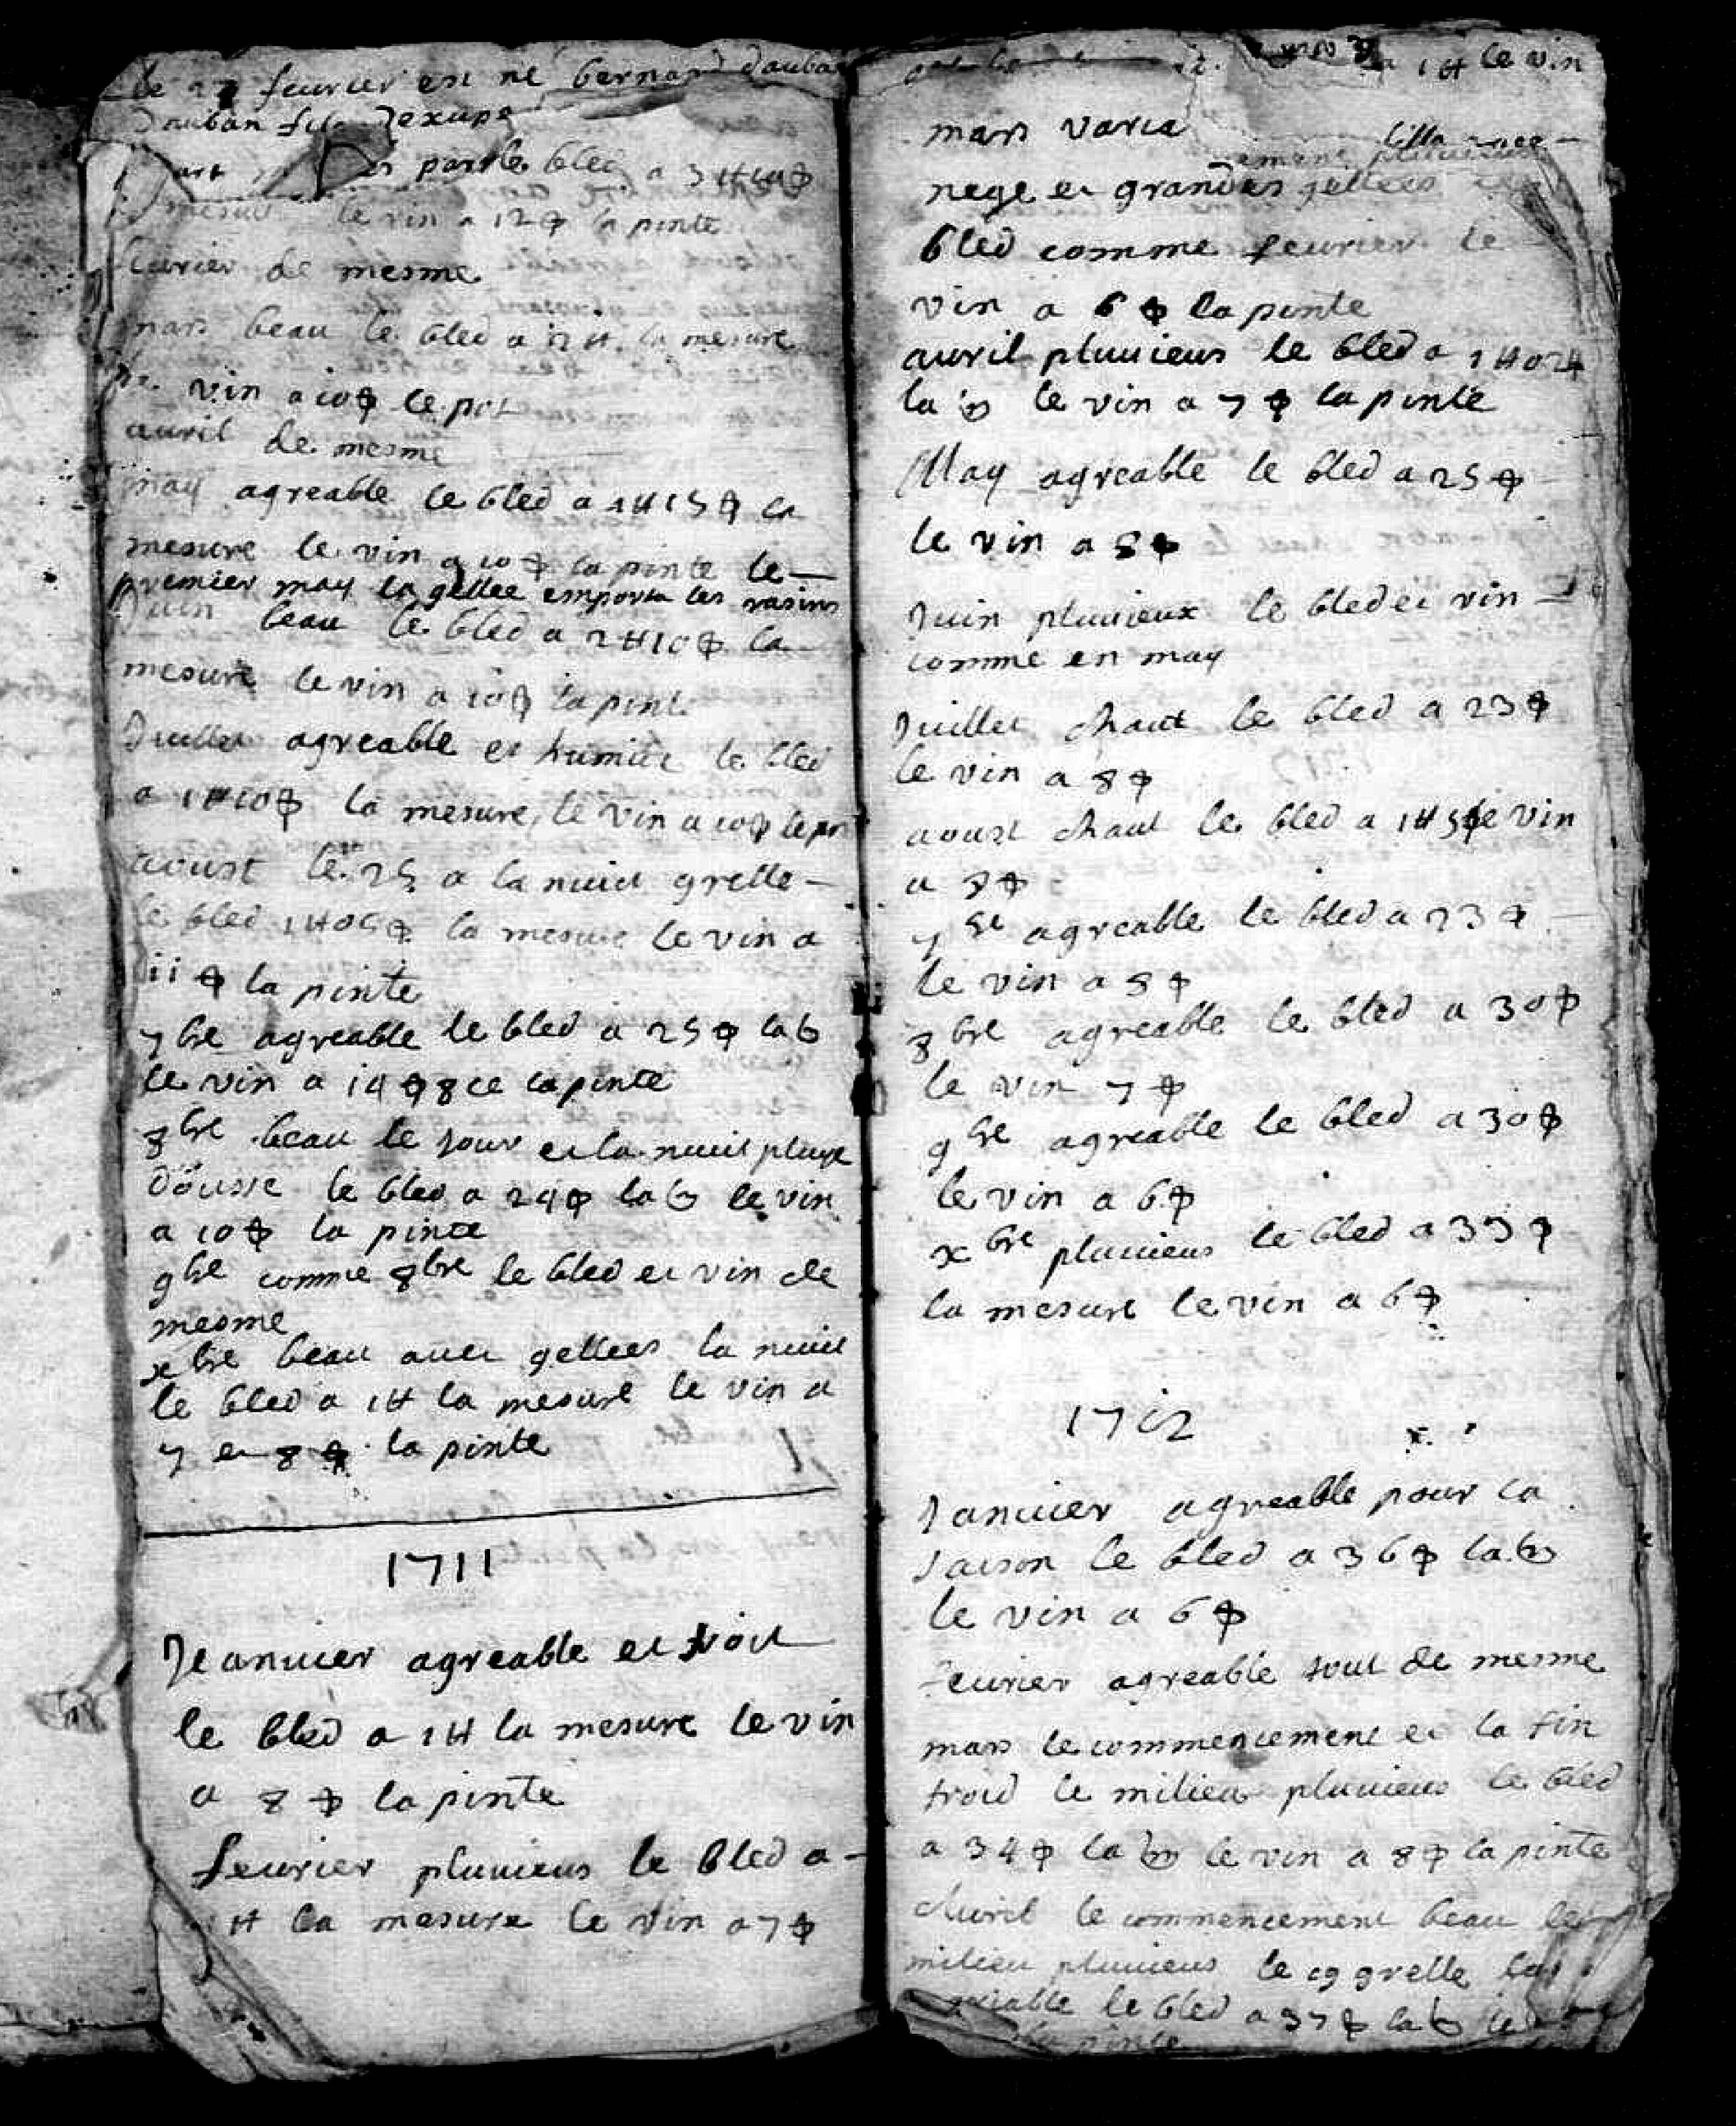 le 27 feurier est ne bernard dauban
dauban fils dexupe
parle bled a 3 ₶
mesure le vin a 12 ₰ la pinte
feurier de mesme
mars beau le bled a 2 ₶ la mesure
vin a 10 ₰ le pot
auril de mesme
may agreable le bled a 1 ₶ 15 ₰ la
mesure le vin a 10 ₰ la pinte le
premier may la gellee emporta les rasins
Juin beau le bled a 2 ₶ 10 ₰ la
mesure le vin a 10 ₰ la pinte
Juillet agreable et humide le bled
a 1 ₶ 10 ₰ la mesure, le vin a 10 ₰ le pot
aoust le 25 a la nuict grelle
le bled 1 ₶ 05 ₰ la mesure le vin a
ii ₰ la pinte
7bre agreable le bled a 25 ₰ la m
le vin a 14 ₰ 8ce la pinte
8bre beau le jour et la nuit pluye
dousse le bled a 24 ₰ la m le vin
a 10 ₰ la pinte
9bre comme 8bre le bled et vin de
mesme
xbre beau auec gellees la nuict
le bled a 1 ₶ la mesure le vin a
7 et 8 ₰ la pinte
1711
Jeanuier agreable et froit
le bled a 1 ₶ la mesure le vin
a 8 ₰ la pinte
feurier pluuieus le bled a
₶ la mesure le vin a 7 ₰
a 1 ₶ le vin
mars varia
nege et grandes gellees
bled comme feurier le
vin a 6 ₰ la pinte
auril pluuieus le bled a 1 ₶ 02 ₰
la m le vin a 7 ₰ la pinte
May agreable le bled a 25 ₰
le vin a 8 ₰
Juin pluuieux le bled et vin
comme en may
Juillet chaut le bled a 23 ₰
le vin a 8 ₰
aoust chaut le bled a 1 ₶ 5 ₰ le vin
a 8 ₰
7bre agreable le bled a 23 ₰
le vin a 8 ₰
8bre agreable le bled a 30 ₰
le vin 7 ₰
9bre agreable le bled a 30 ₰
le vin a 6 ₰
xbre pluuieus le bled a 33 ₰
la mesure le vin a 6 ₰
1712
Januier agreable pour la
saison le bled a 36 ₰ la m
le vin a 6 ₰
feurier agreable tout de mesme
mars le commencement et la fin
froid le milieu pluuieus le bled
a 34 ₰ la m le vin a 8 ₰ la pinte
Auril le commencement beau le
milieu pluuieus le 19 grelle
le bled a 37 ₰ la m le
la pinte